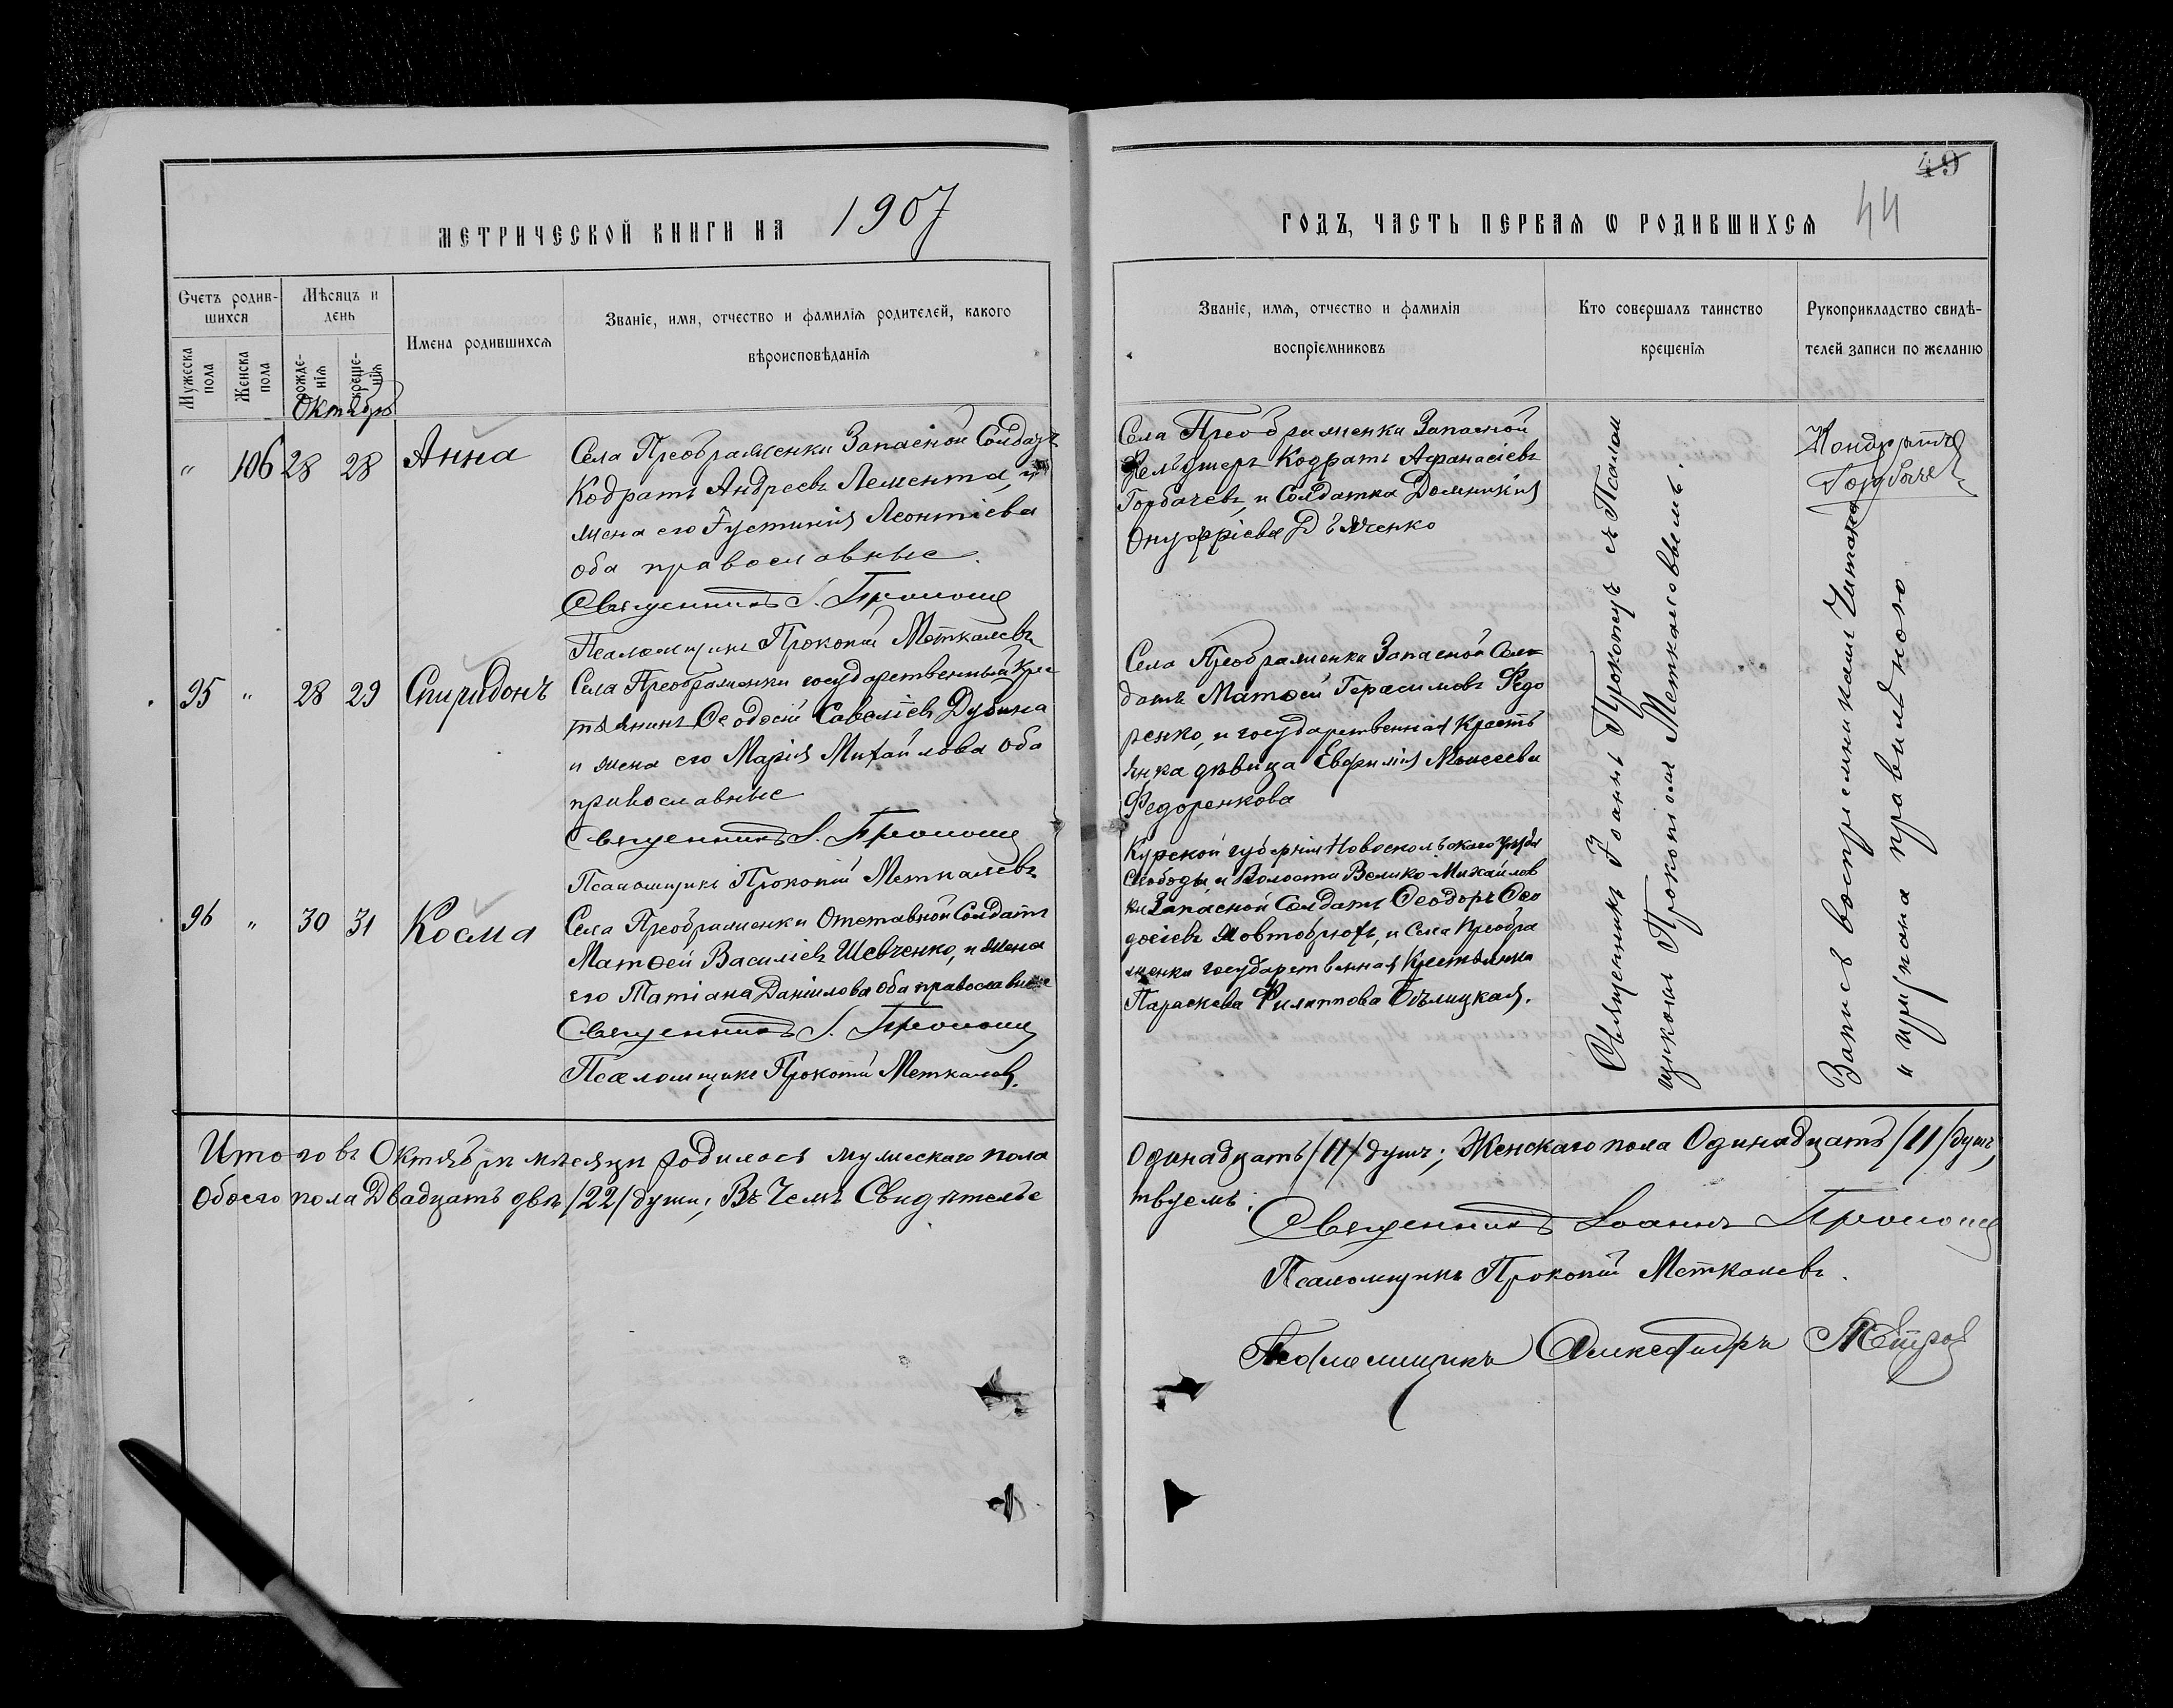 МЕТРИЧЕСКОЙ КНИГИ НА 1907
Счетъ родив-
шихся
Мѣсяцъ и
день
Имена родившихся
Званіе, имя, отчество и фамилія родителей, какого
вѣроисповѣданія
Мужеска
пола
Женска
пола
рожде-
нія
креще-
нія
Октябрь
" 106 28 28 Анна
Села Преображенки Запасной Солдатъ
Кодратъ Андреевъ Лемента, и
жена его Іустинія Леонтіева
оба православные.
Священникъ І.
Псаломщикъ Прокопій Меткалевъ
95 " 28 29 Спиридонъ
Села Преображенки государственный Крес
тьянинъ Ѳеодосій Савеліевъ Дубина
и жена его Марія Михайлова оба
православные
Священникъ І.
Псаломщикъ Прокопій Меткалевъ
96 " 30 31 Косма
Села Преображенки Отставной Солдатъ
Матѳей Василіевъ Шевченко, и жена
его Татіана Даніилова оба православные
Священникъ І.
Псаломщикъ Прокопій Меткалевъ.
Итого въ Октябрѣ мѣсяцѣ родилось мужескаго пола
Обоего пола Двадцать двѣ /22/ души; Въ Чемъ Свидѣтельс
49
44
ГОДЪ, ЧАСТЬ ПЕРВАЯ Ѡ РОДИВШИХСЯ
Званіе, имя, отчество и фамилія
воспріемниковъ
Кто совершалъ таинство
крещенія
Рукоприкладство свидѣ-
телей записи по желанію
Села Преображенки Запасной
Фельдшеръ Кодратъ Афанасіевъ
Горбачевъ, и Солдатка Домникія
Онуфріева Дъяченко
Села Преображенки Запасной Сол
датъ Матѳей Герасимовъ Федо
ренко, и государственная Кресть
янка дѣвица Евфимія Моисеева
Федоренкова
Курской губерніи Новооскольскаго уѣзда
Слободы и Волости Велико-Михайлов
ки Запасной Солдатъ Ѳеодоръ Ѳео
досіевъ Жовтобрюхъ, и Села Преобра
женки государственная Крестьянка
Параскева Филиппова Бѣлицкая.
Священникъ Іоаннъ Прокопецъ съ Псалом
щикомъ Прокопіемъ Меткалевымъ.
Кондратъ
Горбаче
Запись воспріемниками Читана
и признана правильною
Одинадцать /11/ душъ; Женскаго пола Одинадцать /11/ душъ,
твуемъ:
Священникъ Іоаннъ
Псаломщикъ Прокопій Меткалевъ.
Псаломщикъ Александръ Петров